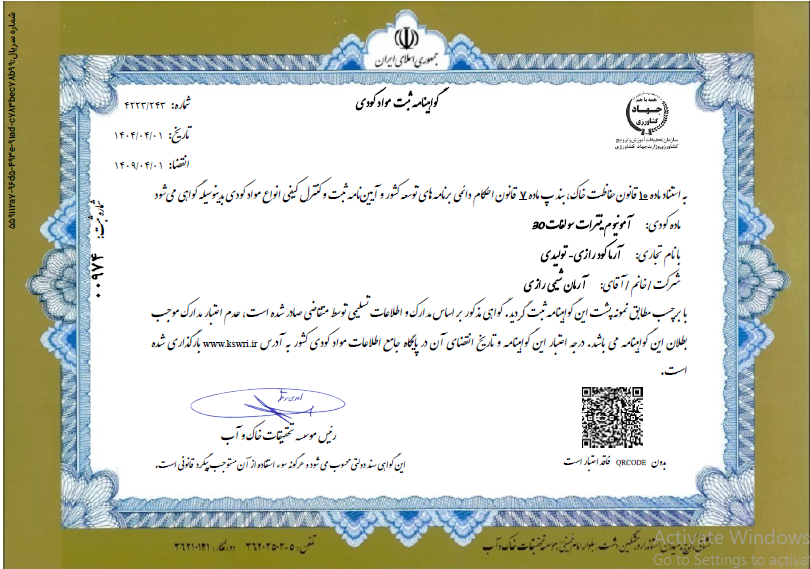 جمهوری اسلامی ایران
همه با هم
جهاد
کشاورزی
سازمان تحقیقات، آموزش و ترویج
کشاورزی وزارت جهاد کشاورزی
گواهینامه ثبت مواد کودی
شماره: ۴۲۲۳/۲۴۳
تاریخ: ۱۴۰۴/۰۴/۰۱
انقضاء: ۱۴۰۹/۰۴/۰۱
به استناد ماده ۱۰ قانون حفاظت خاک، بند پ ماده ۷ قانون احکام دائمی برنامه های توسعه کشور و آیین نامه ثبت و کنترل کیفی انواع مواد کودی بدینوسیله گواهی می شود
ماده کودی: آمونیوم نیترات سولفات 30
با نام تجاری: آرماکود رازی - تولیدی
شرکت / خانم / آقای: آرمان شیمی رازی
با برچسب مطابق نمونه پشت این گواهینامه ثبت گردید. گواهی مذکور بر اساس مدارک و اطلاعات تسلیمی توسط متقاضی صادر شده است، عدم اعتبار مدارک موجب
بطلان این گواهینامه می باشد. درجه اعتبار این گواهینامه و تاریخ انقضای آن در پایگاه جامع اطلاعات مواد کودی کشور به آدرس www.kswri.ir بارگذاری شده
است.
رئیس موسسه تحقیقات خاک و آب
بدون QRCODE فاقد اعتبار است
این گواهی سند دولتی محسوب می شود و هرگونه سوء استفاده از آن مستوجب پیگرد قانونی است.
شماره ثبت: ۰۰۹۷۴
تلفن: ۵-۳۶۲۰۳۵۰۲ دورنگار: ۳۶۲۱۰۱۲۱
موسسه تحقیقات خاک و آب
Activate Windows
Go to Settings to activa